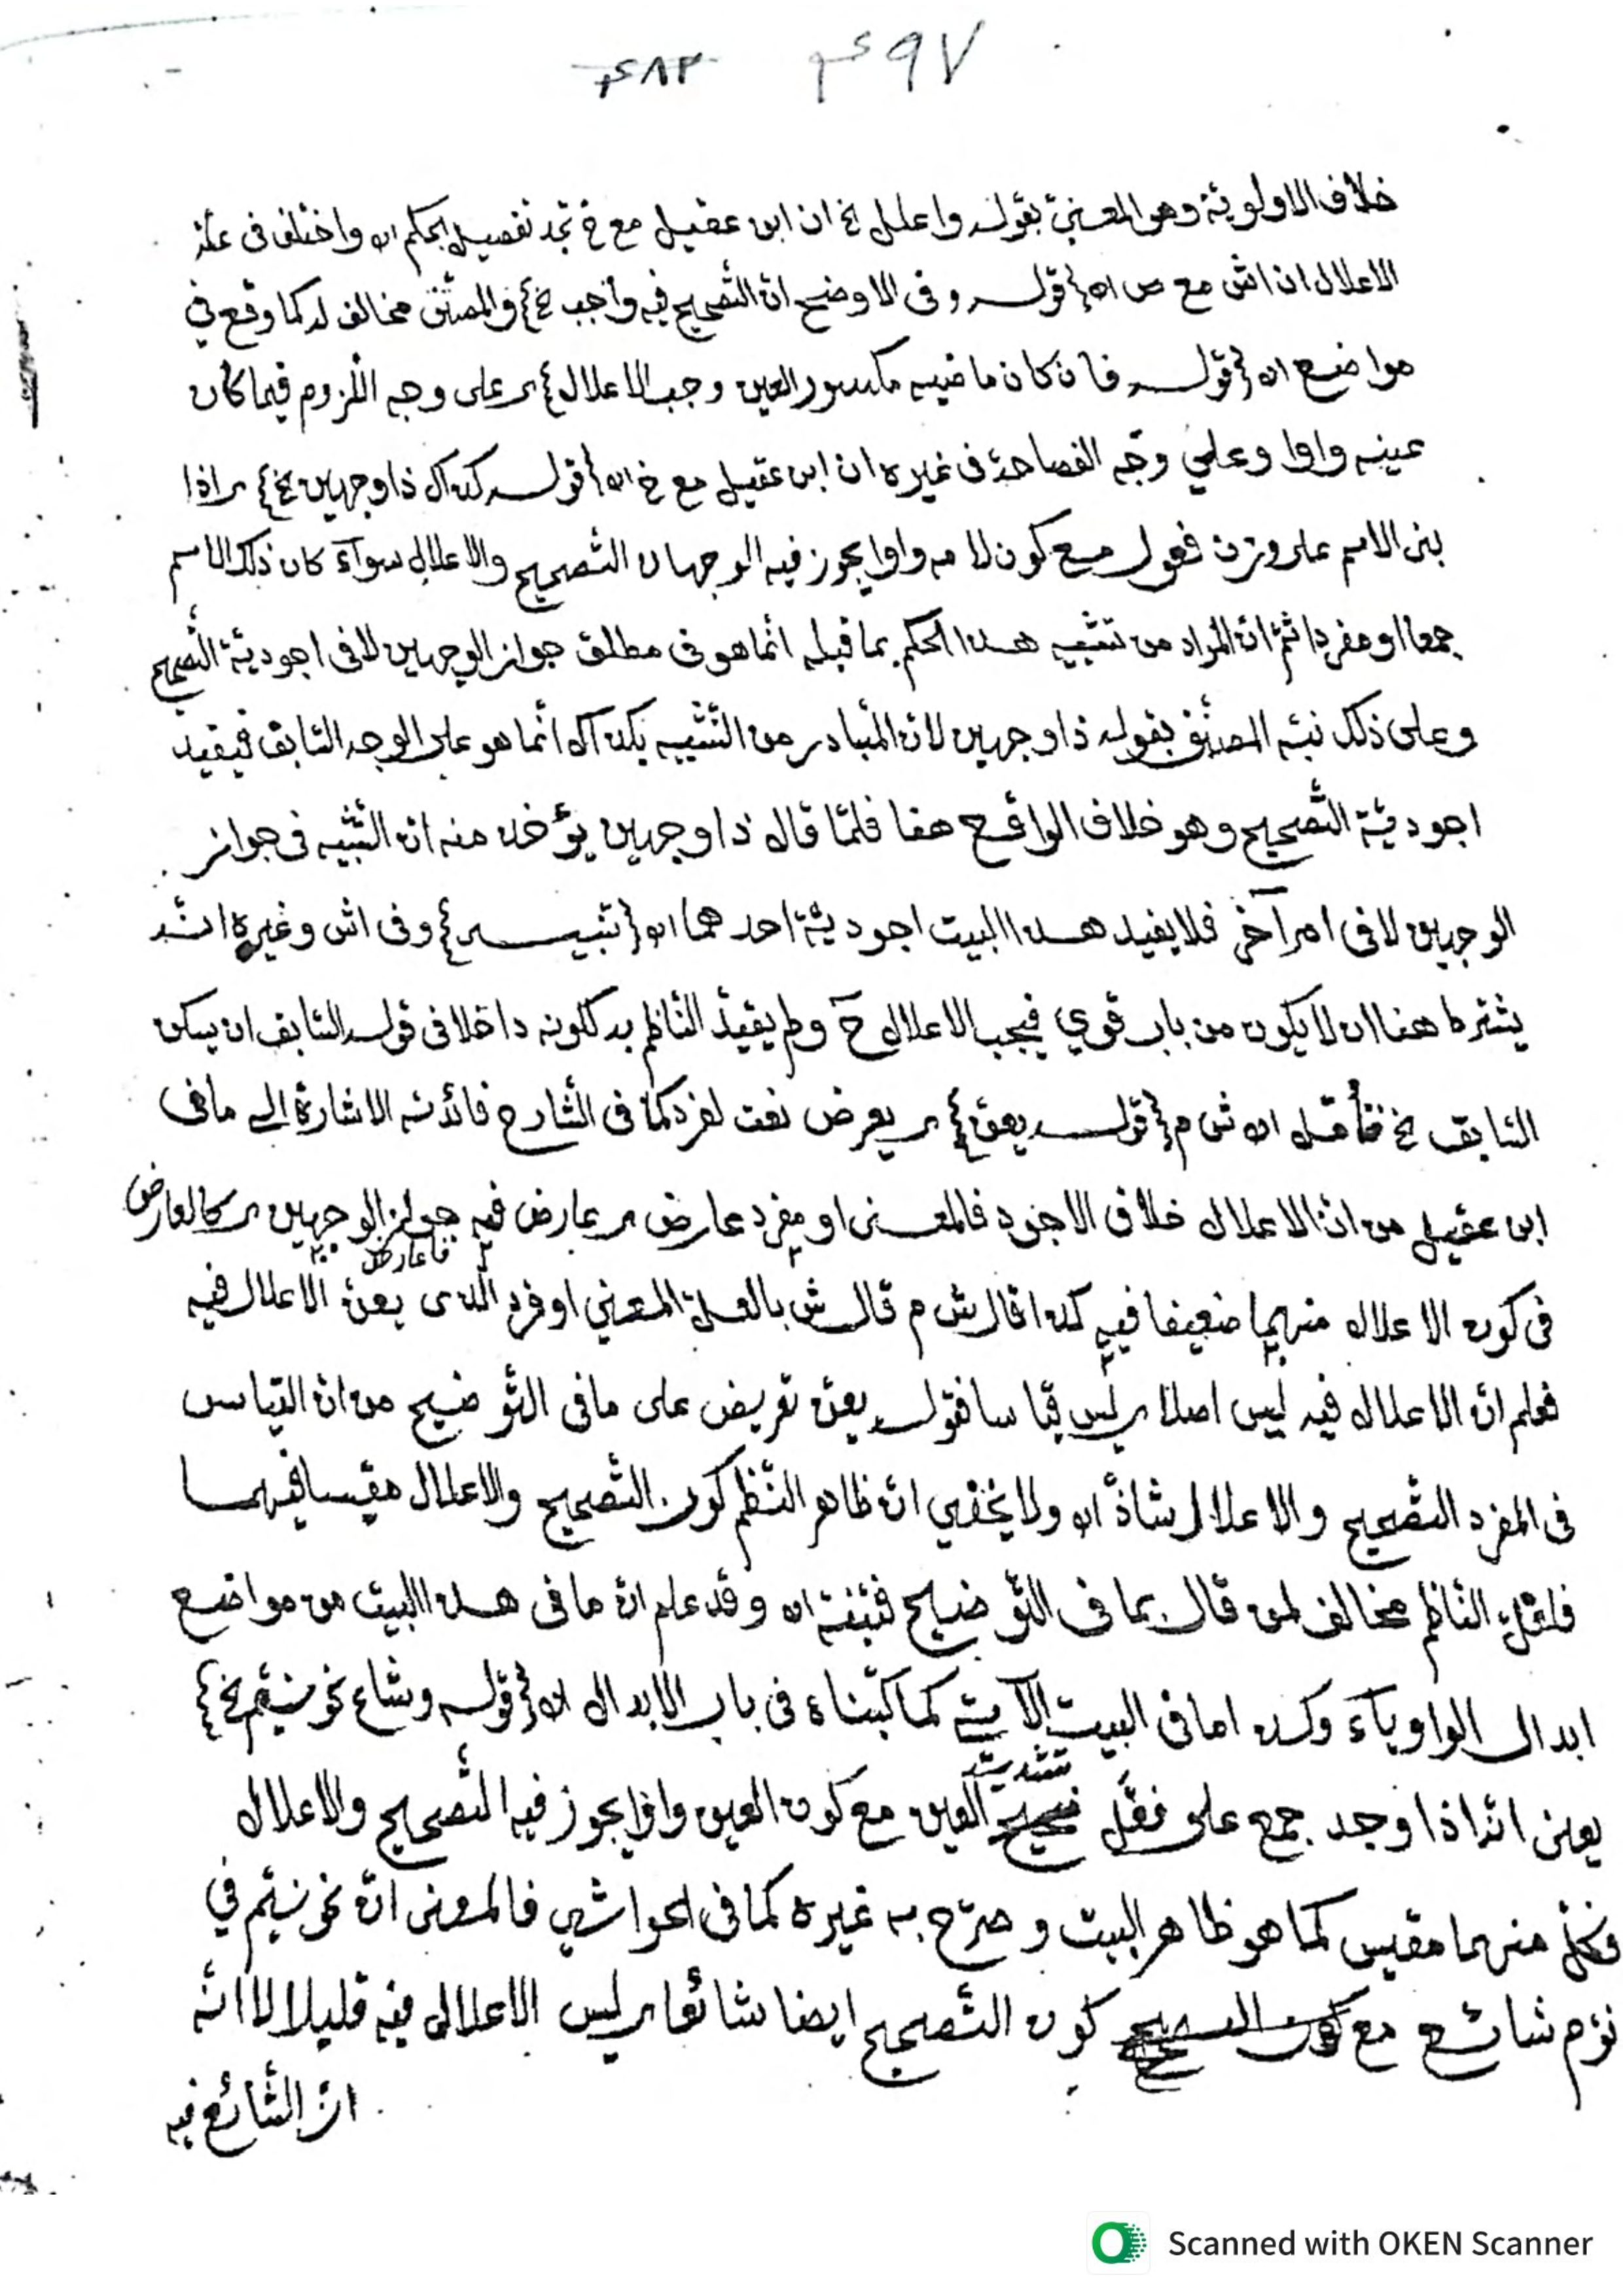 ٤٨٢ ٤٩٧
خلاف الاولوية وهو المعنيّ بقوله واعلل الخ ان ابن عقيل مع خ تجد تفصيل الحكم اه واختلف في علة
الاعلال ان اش مع ص اه {قوله وفي الاوضح ان التصحيح فيه واجب الخ} والمصنّف مخالف له كما وقع في
مواضع اه {قوله فان كان ماضيه مكسور العين وجب الاعلال} ى على وجه اللّزوم فيما كان
عينه واوا وعلي وجه الفصاحة في غيره ان ابن عقيل مع خ اه {قوله كذاك ذا وجهين الخ} ى اذا
بنى الاسم على وزن فعول مع كون لامه واوا يجوز فيه الوجهان التصحيح والاعلال سوآء كان ذلك الاسم
جمعا او مفردا ثمّ انّ المراد من تشبيه هذا الحكم بما قبله انّما هو في مطلق جواز الوجهين لا في اجوديّة التّصحيح
وعلى ذلك نبّه المصنّف بقوله ذا وجهين لانّ المتبادر من التّشبيه بكذاك انّما هو على الوجه السّابق فيفيد
اجوديّة التّصحيح وهو خلاف الواقع هنا فلمّا قال ذا وجهين يؤخذ منه انّ التّشبيه في جواز
الوجهين لا في امر آخر فلا يفيد هذا البيت اجوديّة احدهما اه {تنبيه} وفي اش وغيره انّه
يشترط هنا ان لا يكون من باب قوي فيجب الاعلال ح ولم يقيّد النّاظم به لكونه داخلا في قوله السّابق ان يسكن
السّابق الخ فتأمّل اه ش م {قوله يعنّ} ى يعرض نعت لفرد كما في الشّارح فائدته الاشارة الى ما في
ابن عقيل من انّ الاعلال خلاف الاجود فالمعنى او مفرد عارض ى عارض فيه جواز الوجهين ى كالعارض
في كون الاعلال منهما ضعيفا فيه كذا قال ش م قال ش بالعلّة المعني او فرد الّذى يعنّ الاعلال فيه
فعلم انّ الاعلال فيه ليس اصلا ى ليس قياسا فقوله يعنّ تعريض على ما في التّوضيح من انّ القياس
في المفرد التّصحيح والاعلال شاذّ اه ولا يخفي انّ ظاهر النّظم كون التّصحيح والاعلال مقيسا فيهما
النّاظم مخالف لمن قال بما في التّوضيح اه وقد علم انّ ما في هذا البيت من مواضع
ابدال الواو يآء وكذا ما في البيت الآتي كما كتبناه في باب الابدال اه {قوله وشاع نحو نيّم الخ}
يعنى انّه اذا وجد جمع على فعّل تشديد العين مع كون العين واوا يجوز فيه التّصحيح والاعلال
وكلّ منهما مقيس كما هو ظاهر البيت وصرّح به غيره كما في الحواشي فالمعنى انّ نحو نيّم في
نوّم شائع مع كون التّصحيح ايضا شائعا ى ليس الاعلال فيه قليلا لا انّه
انّ الشّائع فيه
Scanned with OKEN Scanner